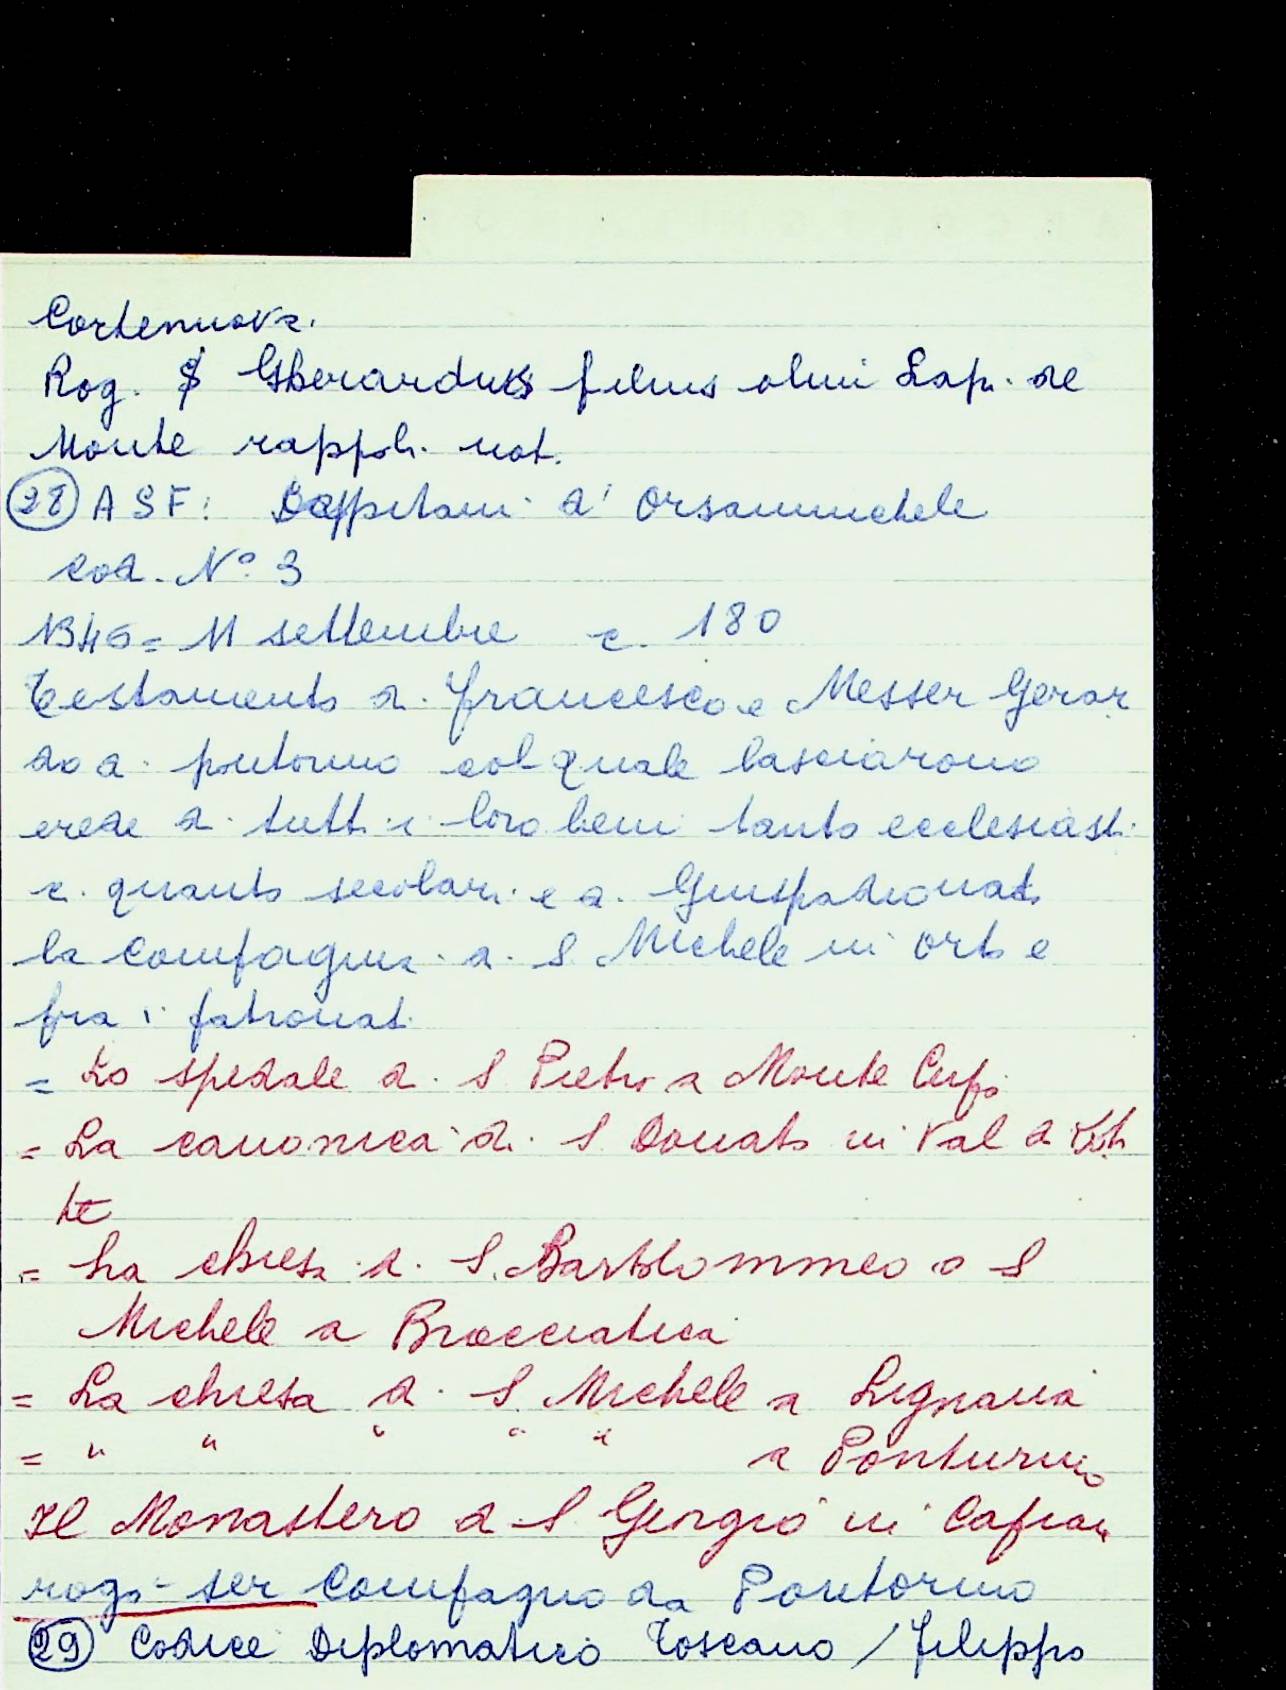 Cortenuova.
Rog. S Gherardus filius olim Lapi. de
Monte rappoli. not.
(28) ASF: Cappitani d' Orsammichele
Cod. N° 3
1346 = 11 settembre c. 180
Testamento di Francesco e Messer Gerar
do di pontormo col quale lasciarono
erede di tutti i loro beni tanto ecclesiasti
ci quanto secolari e di Giuspadronati
la Compagnia di S Michele in Orto e
fra i patronati
= Lo spedale di S Pietro a Monte Cupi
= La canonica di S Donato in Val di Bot
te
= La chiesa di S. Bartolommeo o S
Michele a Brocciatica
= La chiesa di S. Michele a Lignana
= " " " " " a Pontormo
Il Monastero di S Giorgio in Capian
rogò ser Compagno da Pontormo
(29) Codice Diplomatico Toscano / Filippo